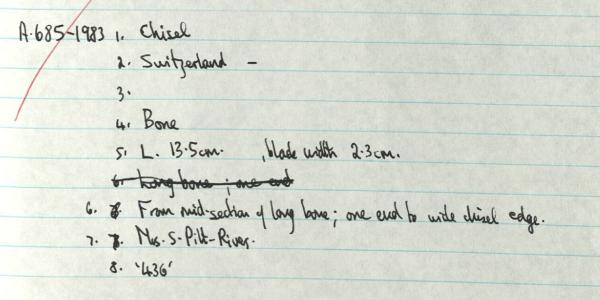 A.685-1983 1. Chisel
2. Switzerland -
3.
4. Bone
5. L. 13.5cm. , blade width 2.3cm.
6. Long bone ; one end
6. From mid-section of long bone; one end to wide chisel edge.
7. Mrs. S. Pitt-River.
8. '436'